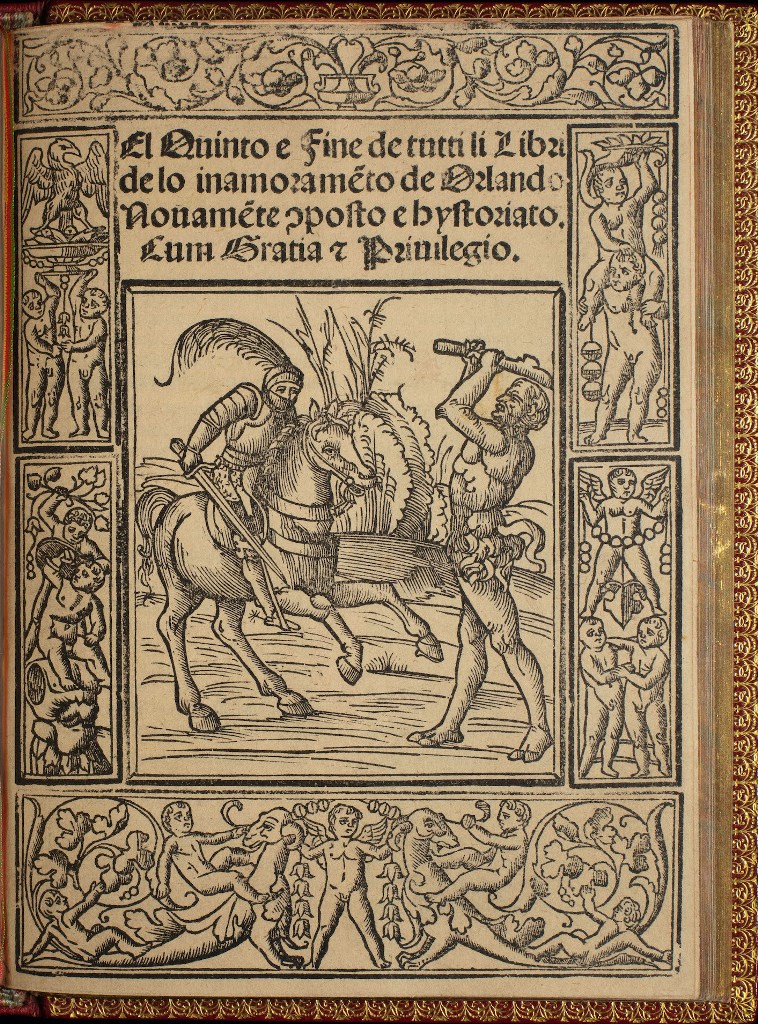 El Quinto e Fine de tutti li Libri
de lo inamoramẽto de Orlando
Nouamẽte ↄposto e hystoriato.
Cum Gratia ⁊ Priuilegio.